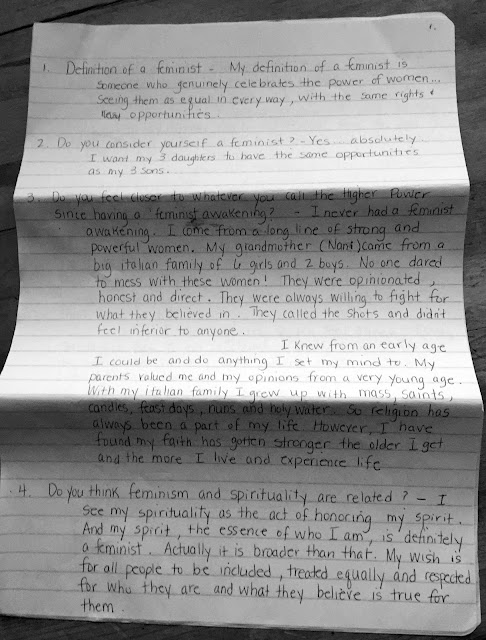 1.
1. Definition of a feminist - My definition of a feminist is
someone who genuinely celebrates the power of women...
Seeing them as equal in every way, with the same rights &
opportunities.
2. Do you consider yourself a feminist? - Yes... absolutely
I want my 3 daughters to have the same opportunities
as my 3 sons.
3. Do you feel closer to whatever you call the Higher Power
since having a "feminist awakening? - I never had a feminist
awakening. I come from a long line of strong and
powerful women. My grandmother (Nani) came from a
big italian family of 6 girls and 2 boys. No one dared
to mess with these women! They were opinionated,
honest and direct. They were always willing to fight for
what they believed in. They called the shots and didn't
feel inferior to anyone.
I knew from an early age
I could be and do anything I set my mind to. My
parents valued me and my opinions from a very young age.
With my italian family I grew up with mass, saints,
candles, feast days, nuns and holy water. So religion has
always been a part of my life. However, I have
found my faith has gotten stronger the older I get
and the more I live and experience life
4. Do you think feminism and spirituality are related? - I
see my spirituality as the act of honoring my spirit.
And my spirit, the essence of who I am, is definitely
a feminist. Actually it is broader than that. My wish is
for all people to be included, treated equally and respected
for who they are and what they believe is true for
them.